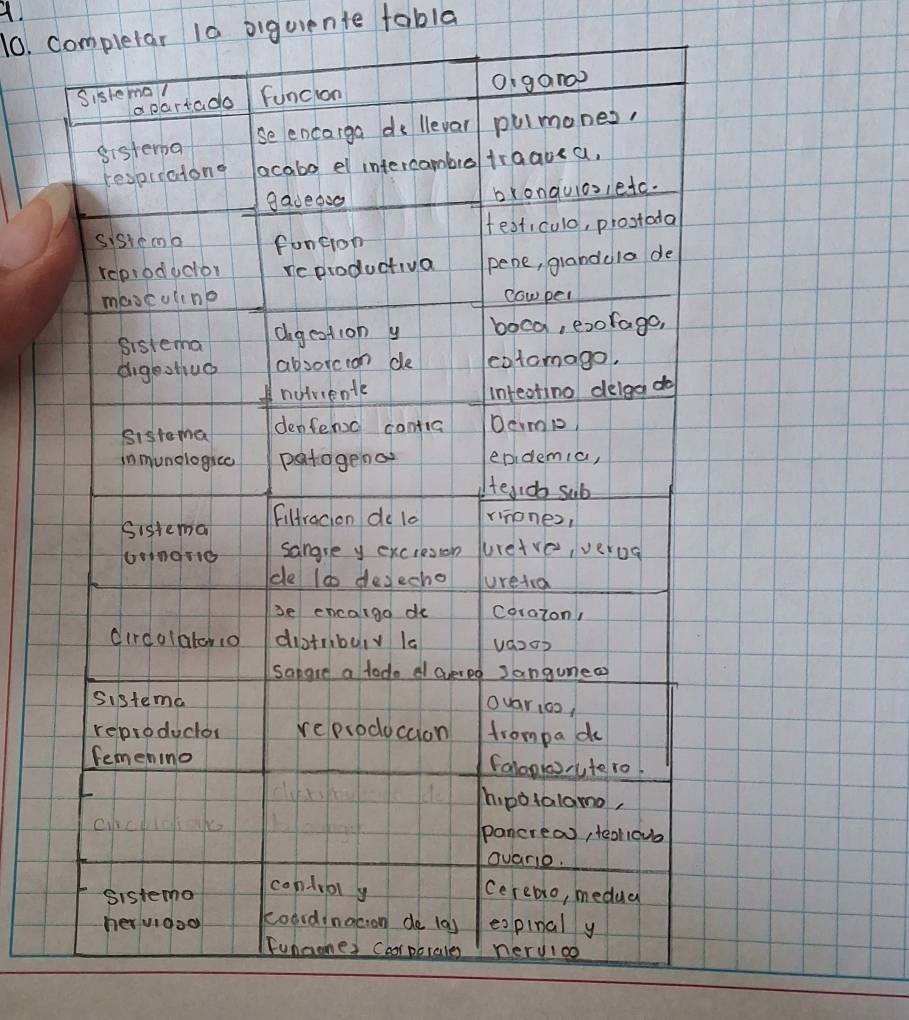 9.
10. completar la siguiente tabla
Sistema/ apartado | función | Organos
sistema respiratorio | se encarga de llevar acabo el intercambio gaseoso | pulmones, traquea, bronquios, etc.
sistema reproductor masculino | funcion reproductiva | testiculo, prostata pene, glandula de cowper
sistema digestivo | digestion y absorcion de nutriente | boca, esofago, estomago, intestino delgado
sistema inmunologico | denfensa contra patogenos | Dermis, epidemia, tejido sub
sistema urinario | filtracion de la sangre y excresion de los desecho | riñones, uretra
circulatorio | se encarga de distribuir la sangre a todo el cuerpo | corazon, vasos sanguneos
sistema reproductor femenino | reproduccion | ovarios, trompa de falopios, utero.
hipotalamo, pancreas, testiculo ovario.
sistema nervioso | control y coordinacion de las funciones coorporales | cerebro, medua espinal y nervios